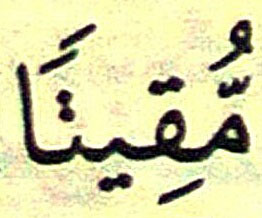 مُّقِيتًا